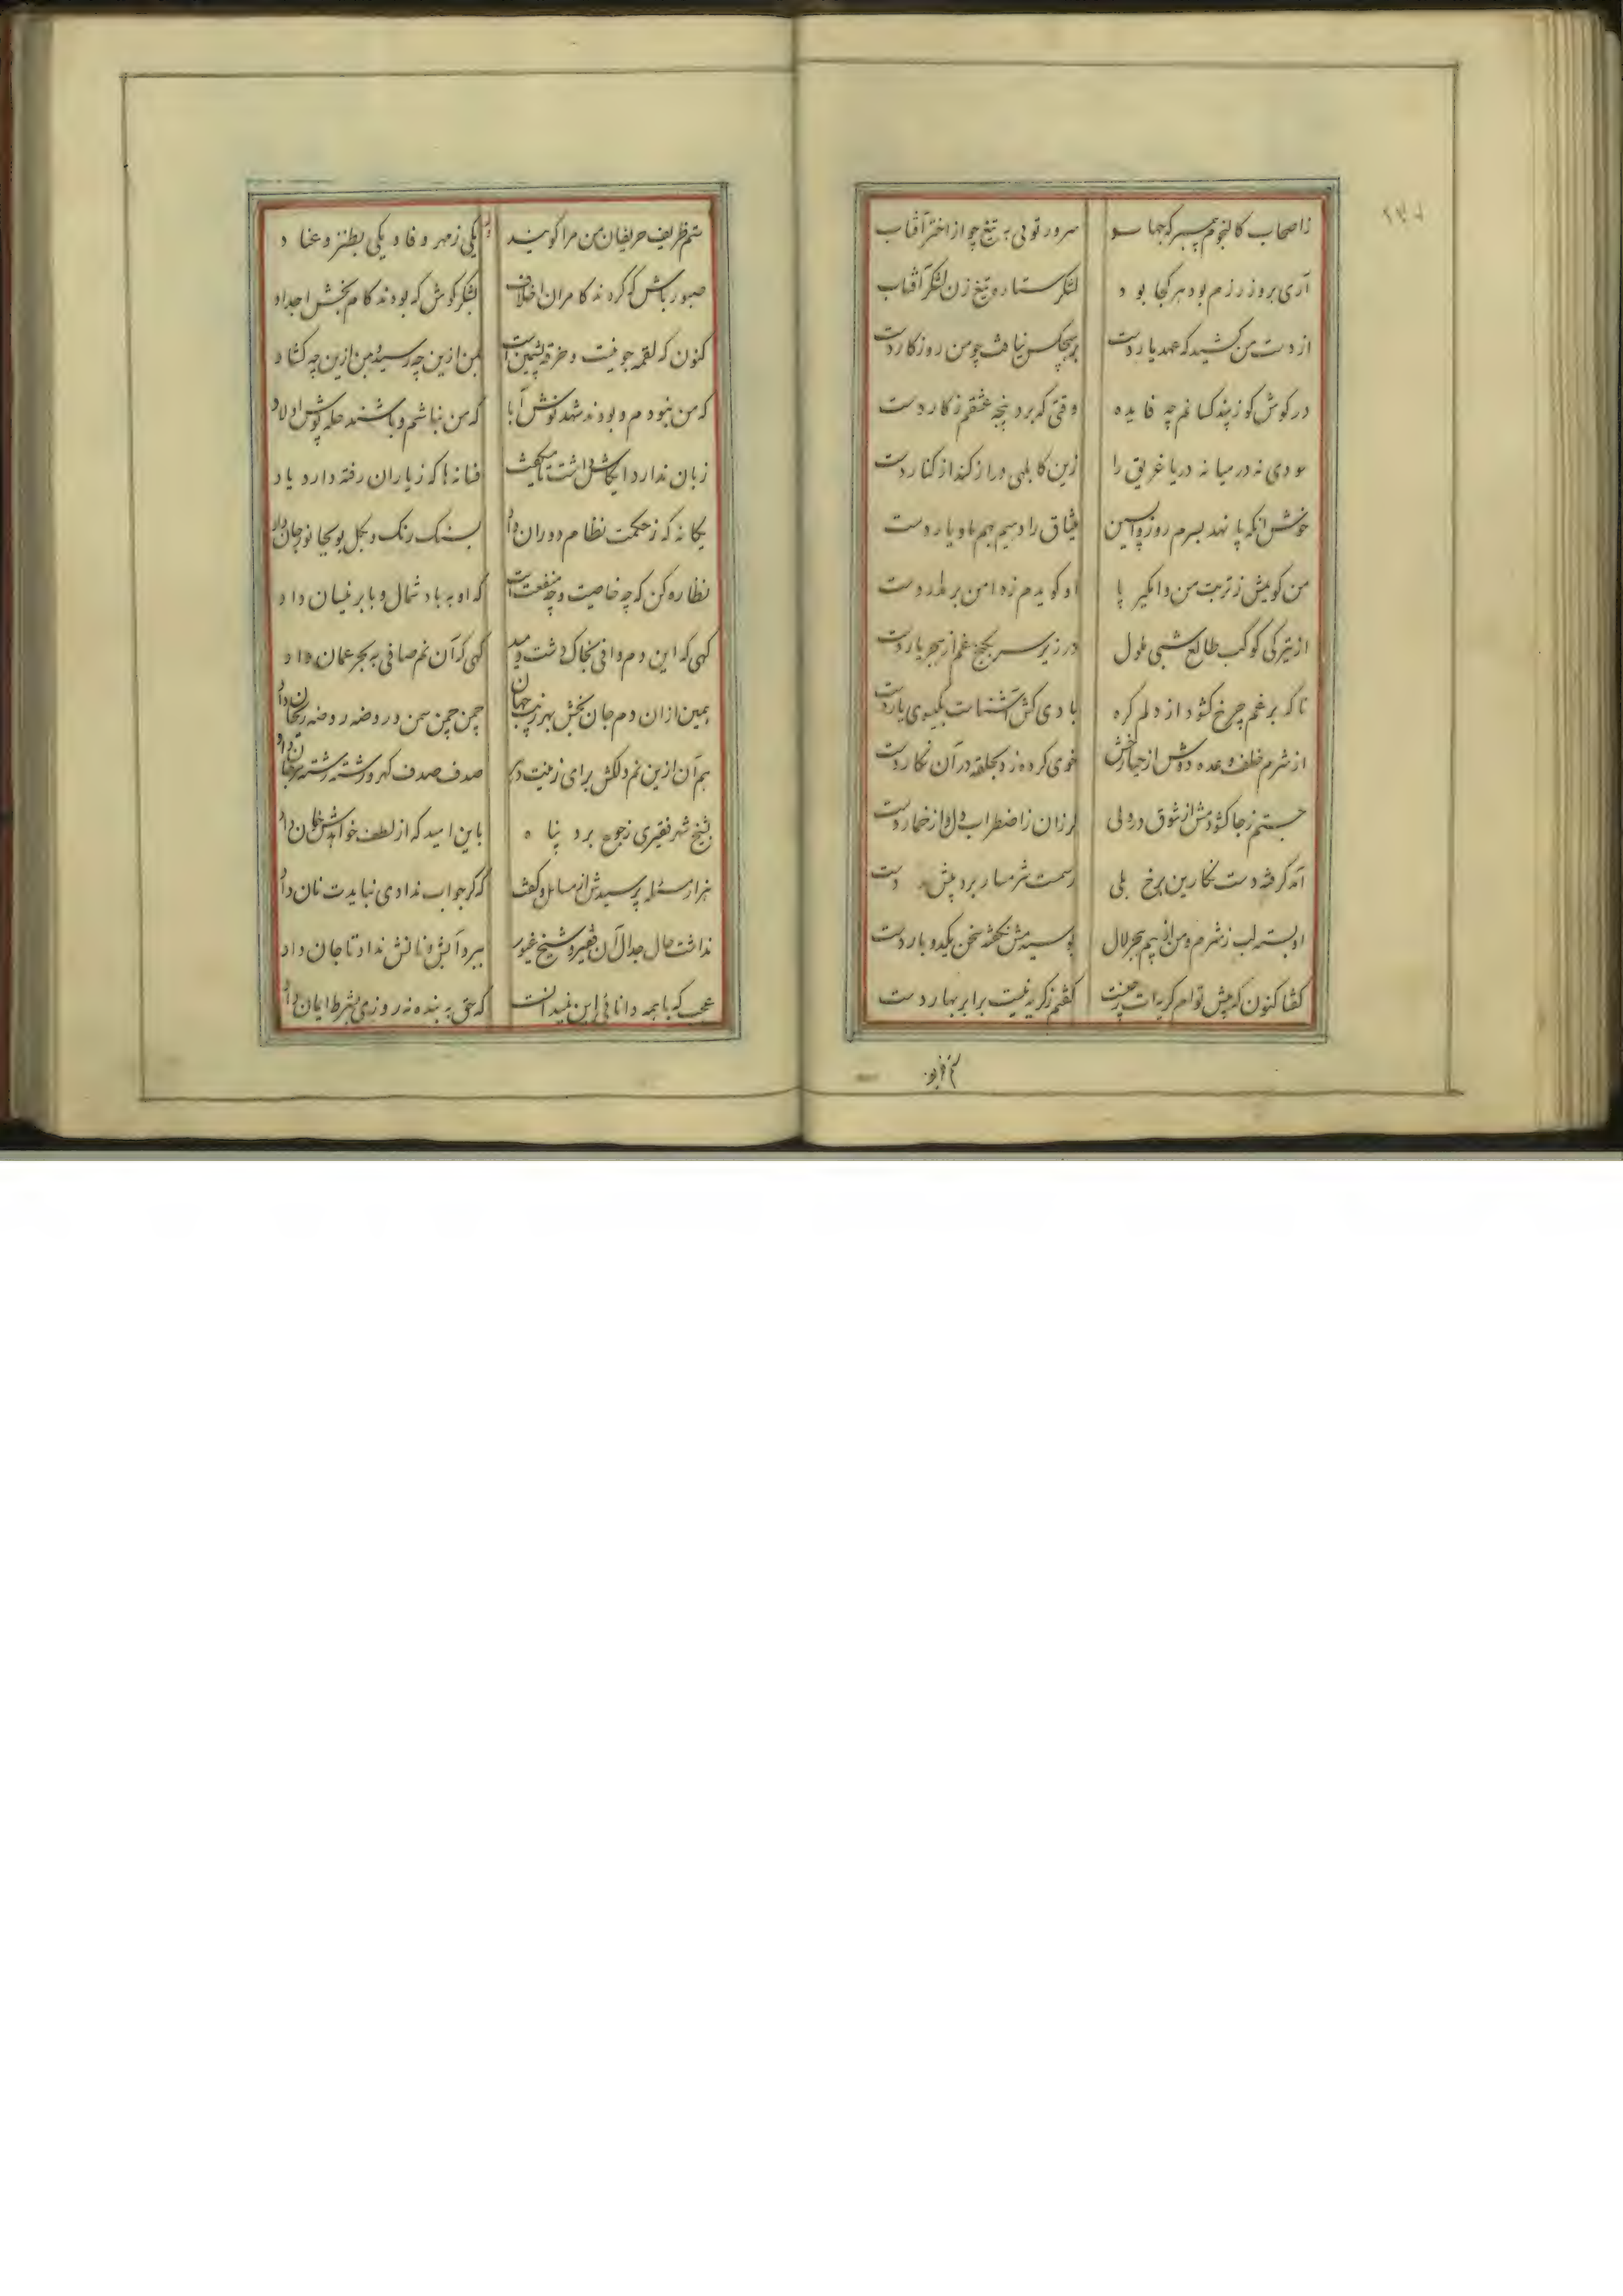 زاصحاب کالنجوم پیمبر که جمله سو سرور توئی به تیغ چو از اختر آفتاب
آری بروز رزم بود هر کجا بود لشکر ستاره تیغ زن لشکر آفتاب
از دست من کشید که عهد یار دست بر هیچکس نیافت چو من روزگار دست
در گوش گو ز پند کسانم چه فایده وقتی که برد پنجه عشقم ز کار دست
سودی نه در میانه دریا غریق را زین کابلهی دراز کند از کنار دست
خوش آنکه پا نهد بسرم روز واپسین میثاق را دهیم بهم با و یار دست
من گویمش ز تربت من وامگیر پا او گویدم ز دامن من بر مدار دست
از تیرگی کوکب طالع شبی ملول در زیر سر بکنج غم از هجر یار دست
تا که برغم چرخ گشود از دلم گره بادی کش آشناست بگیسوی یار دست
از شرم خلف وعده دوش از حیا رخش خوی کرده زد بحلقه در آن نگار دست
جستم ز جا گشودمش از شوق در ولی لرزان ز اضطراب دل و از خمار دست
آمد گرفته دست نگارین برخ بلی رسمست شرمسار برد پیش دست
او بسته لب ز شرم و من از بیم هجر لال بوسیدمش نگفته سخن یکدو بار دست
گفتا کنون که پیش توام گریه ات ز چیست گفتم ز گریه نیست برابر بهار دست
ستم ظریف حریفان من مرا گویند یکی ز مهر و فا و یکی بطنز و عناد
صبور باش که گردند کامران اخلاف بشکر کوش که بودند کام بخش اجداد
کنون که لقمه جوینست و خرقه پشمین است بمن ازین چه رسید و من ازین چه گشاد
که من نبودم و بودند شهد نوش آبا که من نباشم و باشند حله پوش اولاد
زبان ندارد ایکاش داشت تا میگفت فسانه ها که ز یاران رفته دارد یاد
یگانه که ز حکمت نظام دوران داد بسنگ رنگ و بگل بو بجانور جان داد
نظاره کن که چه خاصیت و چه منفعت است که او به باد شمال و بابر نیسان داد
گهی که این دم وافی بخاک دشت دمید گهی که آن نم صافی به بحر عمان داد
بمین ازان دم جان بخش بهر زیب جهان چمن چمن سمن و روضه روضه ریحان داد
هم آن ازین نم دلکش برای زینت دهر صدف صدف گهر و رشته رشته مرجان داد
بشیخ شهر فقیری ز جوع برد پناه باین امید که از لطف خواهدش خوان داد
هزار مسئله پرسیدش از مسایل و گفت که گر جواب ندادی نبایدت نان داد
نداشت حال جدال آن فقیر و شیخ غیور ببرد آبش و نانش نداد تا جان داد
عجب که با همه دانائی این نمیدانست که حق به بنده نه روزی بشرط ایمان داد